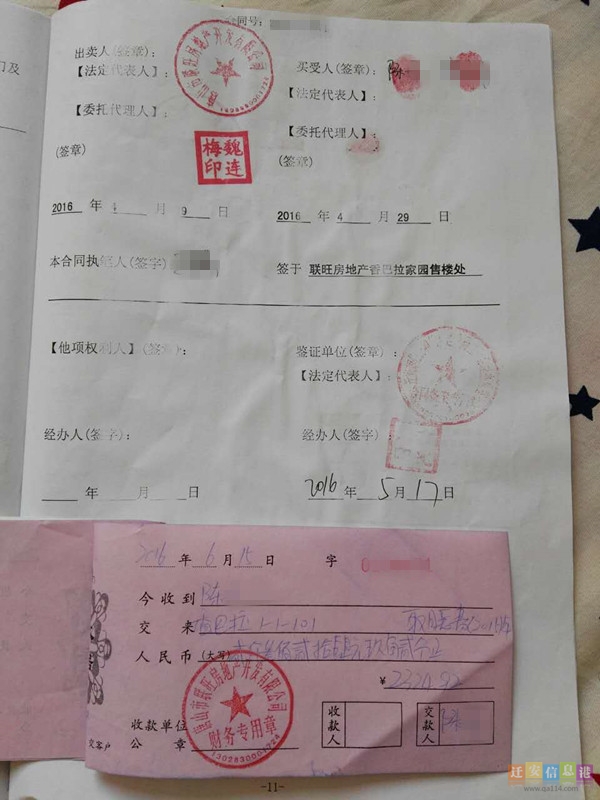 们及
合同号：
出卖人(签章)：
【法定代表人】：
【委托代理人】：
(签章)
魏连梅印
买受人(签章)：陈
【法定代表人】：
【委托代理人】：
(签章)
2016 年 4 月 9 日
2016 年 4 月 29 日
本合同执笔人(签字)
签于 联旺房地产香巴拉家园售楼处
【他项权利人】(签章)：
鉴证单位(签章)：
【法定代表人】：
经办人(签字)：
经办人(签字)：
年 月 日
2016 年 5 月 17 日
2016 年 6 月 15 日 字
今收到 陈
交来 香巴拉 1-1-101
人民币 (大写)
¥
收款单位
公章
收款人
交款人 陈
唐山市联旺房地产开发有限公司
财务专用章
交客户
-11-
迁安信息港
www.qa114.com